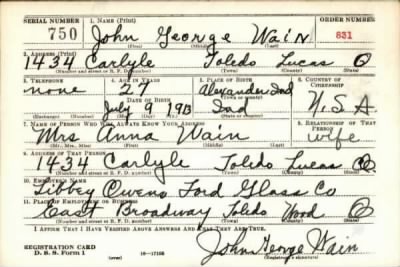 SERIAL NUMBER 1. NAME (Print) ORDER NUMBER
750 John George Wain 831
(First) (Middle) (Last)
2. ADDRESS (Print)
1434 Carlyle Toledo Lucas O
(Number and street or R. F. D. number) (Town) (County) (State)
3. TELEPHONE 4. AGE IN YEARS 5. PLACE OF BIRTH 6. COUNTRY OF CITIZENSHIP
none 27 Alexander Ind
DATE OF BIRTH (Town or county)
July 9 1913 Ind U.S.A
(Mo.) (Day) (Yr.) (State or country)
7. NAME OF PERSON WHO WILL ALWAYS KNOW YOUR ADDRESS 8. RELATIONSHIP OF THAT PERSON
Mrs Anna Wain wife
(Mr., Mrs., Miss) (First) (Middle) (Last)
9. ADDRESS OF THAT PERSON
1434 Carlyle Toledo Lucas O
(Number and street or R. F. D. number) (Town) (County) (State)
10. EMPLOYER'S NAME
Libbey Owens Ford Glass Co
11. PLACE OF EMPLOYMENT OR BUSINESS
East Broadway Toledo Wood O
(Number and street or R. F. D. number) (Town) (County) (State)
I AFFIRM THAT I HAVE VERIFIED ABOVE ANSWERS AND THAT THEY ARE TRUE.
REGISTRATION CARD
D. S. S. Form 1 (over) 16-17105 John George Wain
(Registrant's signature)